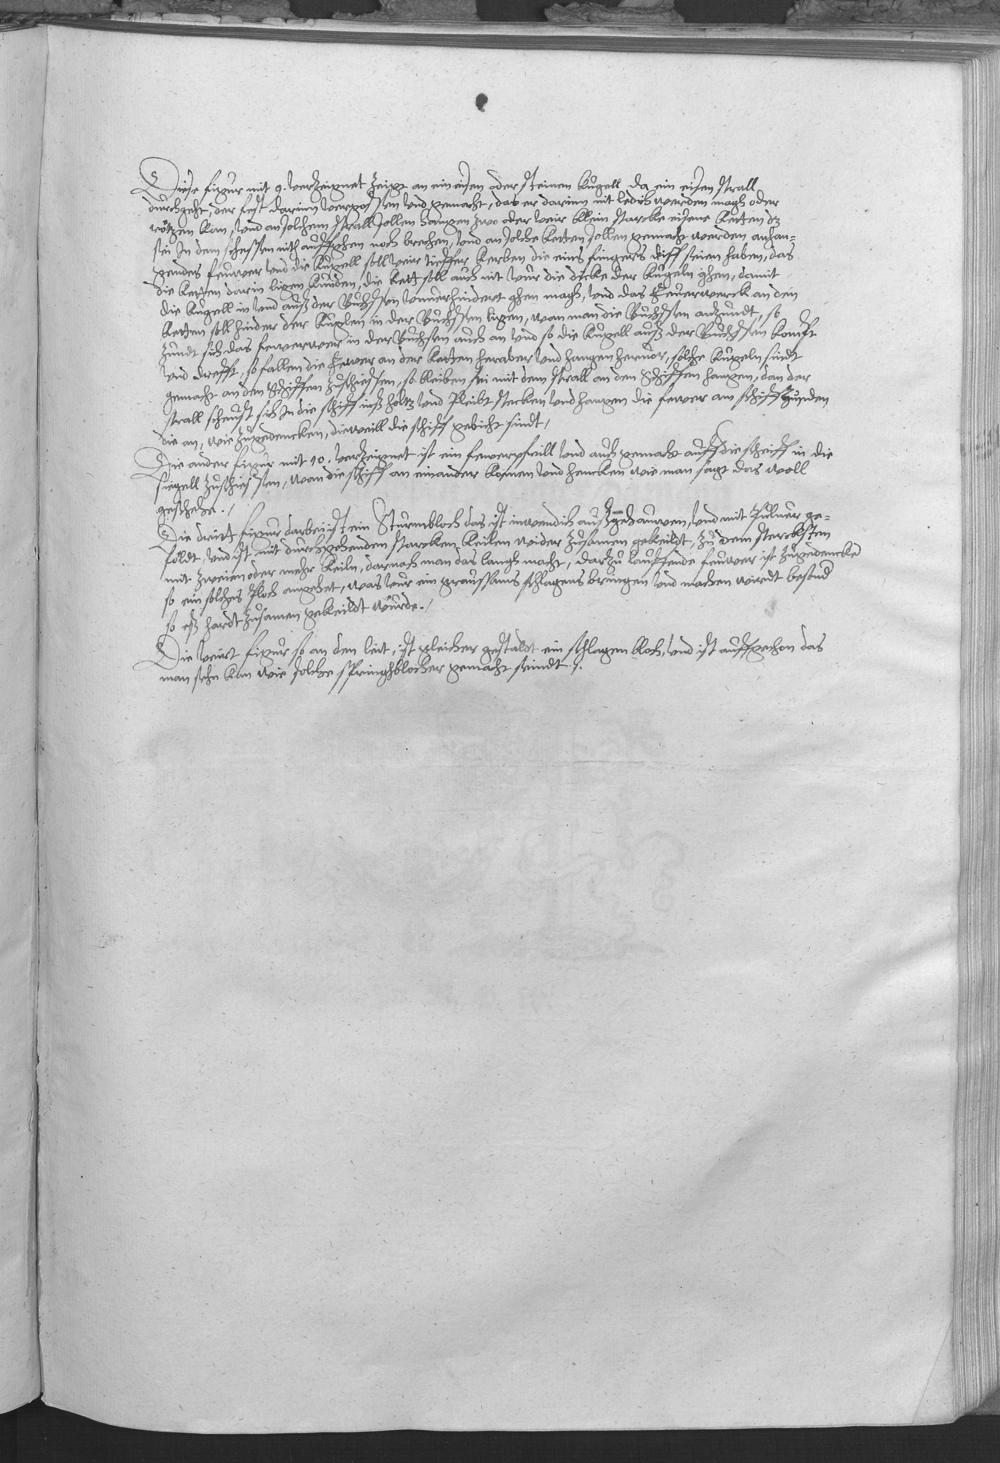 Diese figur mit 9. verzeignet zeigt an ein eisen oder steinen kugell da ein eisen strall
durchgeht, der fest darinn vergossen und gemacht, das er darinn nit ledich werden magh oder
rötzen kan, und an solchem strall sollen hangen zwo oder veir klein starcke eisene ketten dz
sie in dem scheissen nith auffghen noch brechen, und an solche ketten sollen gemacht werden anhan=
gendes feuwer und die kugell soll veir tieffer kerben die eins fingers diff seien haben, das
die ketten darin ligen kunden, die kett soll auch nit uver die dicke der kugeln ghen, damit
die kugell in und auß der Buchssen unverhindert ghen magh, und das feuerwerck an den
ketten soll hinder der kugelen in der Buchssen ligen, wan man die Buchssen anzundt, so
zundt sich das fewerwerck in der Buchsen auch an und so die kugell auß der Buchssen kompt
und drefft, so fallen die fewer an der ketten heraber und hangen hervor, solche kugeln sindt
gemacht an den Schiffen zuschiessen, so bleiben sei mit dem strall an den Schiffen hangen, dan der
strall scheust sich in die schiff inß holtz und pleibt stecken und hangen die fewer am schiff zunden
die an, wie zugedencken, dieweill die schiff gebicht sindt /
Die ander figur mit 10. verzeignet ist ein fewerpfeill und auch gemacht auff die scheiff in die
siegell zuschiessen, wan die schiff an einander komen und hencken wie man sagt das woll
geschehe. /
Die dreit figur darbei ist ein Sturmbloch das ist inwendich außgehauwen, und mit Pulver ge=
foldt, und ist mit durchgehenden starcken keilen wider zusamen gekeildt, zu dem sterckhsten
mit zweien oder mehr keiln, darnach man das langh macht, darzu lauffende feuwer ist zugedencken
so ein solches Ploch angehet, was vur ein graussams schlagens bringen und machen wirdt besond
so eß hardt zusamen gekeildt wurde. /
Die veirt figur so an den leit, ist gleicher gestaldt ein schlagen bloch, und ist auffgethon das
man sehe kan wie solche springhblocher gemacht seindt /.